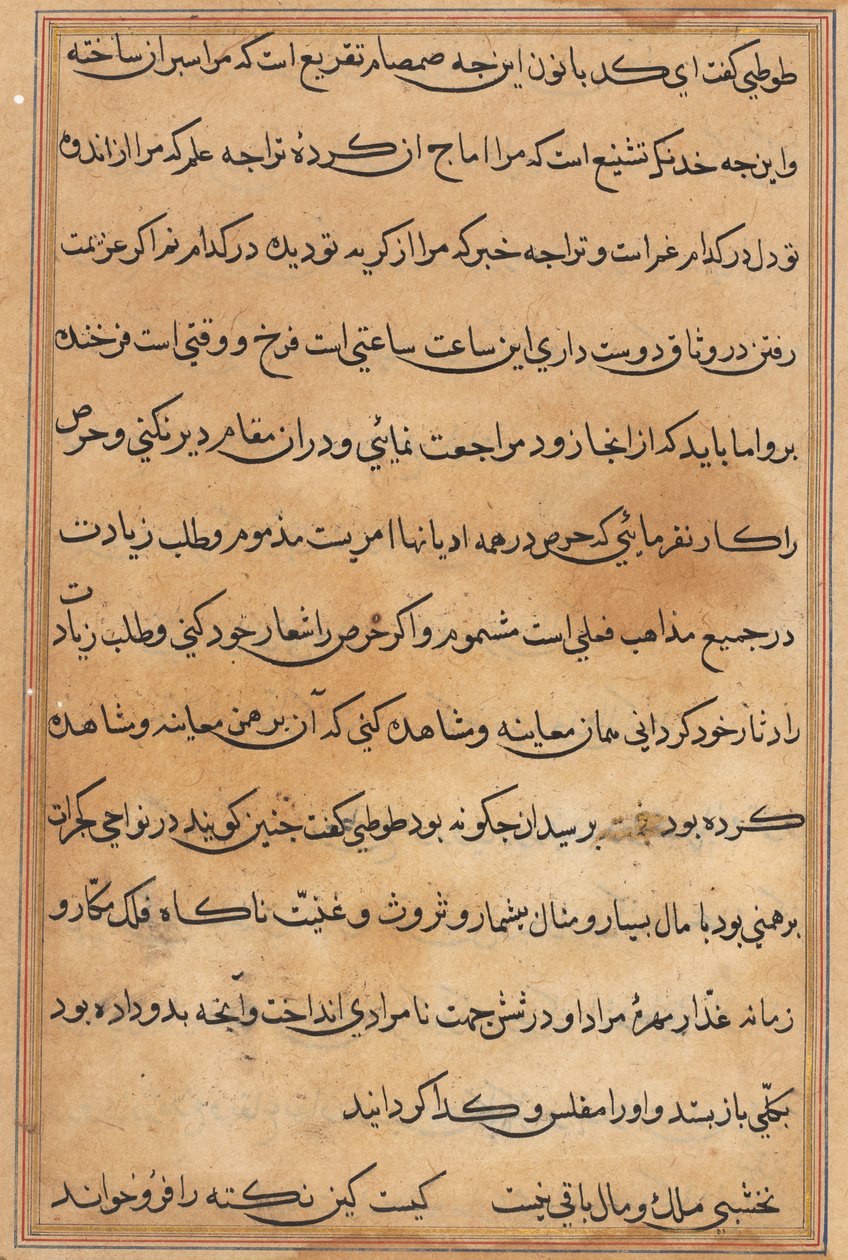 طوطي كفت اي كد بانون اين جه صمصام تقريع است كه مرا سبران ساخته
و اين جه خدنك تشنيع است كه مرا اماج ان كردهٔ تراجه علم كه مرا از اندوه
تو دل در كدام غم است و تراجه خبر كه مرا از كريه تو ديده در كدام نم اكر عزيمت
رفتن در وثاق دوست داري اين ساعت ساعتي است فرخ و وقتي است فرخنده
برو اما بايد كه از انجا زود مراجعت نمائي و دران مقام دير نكني و حرص
را كار نفرمائي كه حرص در همه اديانها امريست مذموم و طلب زيادت
در جميع مذاهب فعلي است مشموم و اكر حرص را شعار خود كني و طلب زيادت
را دثار خود كرداني همان معاينه و مشاهده كني كه آن برهمن معاينه و مشاهده
كرده بود خجسته برسيد ان جكونه بود طوطي كفت جنين كويند در نواحي كجرات
برهمني بود با مال بسيار و منال بيشمار و ثروت و غنيت ناكاه فلك مكّار و
زمانه غدّار مهرهٔ مراد او در شش جهت نامرادي انداخت و آنجه بدو داده بود
بكلّي باز ستد و او را مفلس و كدا كردانيد
نخشبي ملك و مال باقي نيست كيست كين نكته را فرو خواند